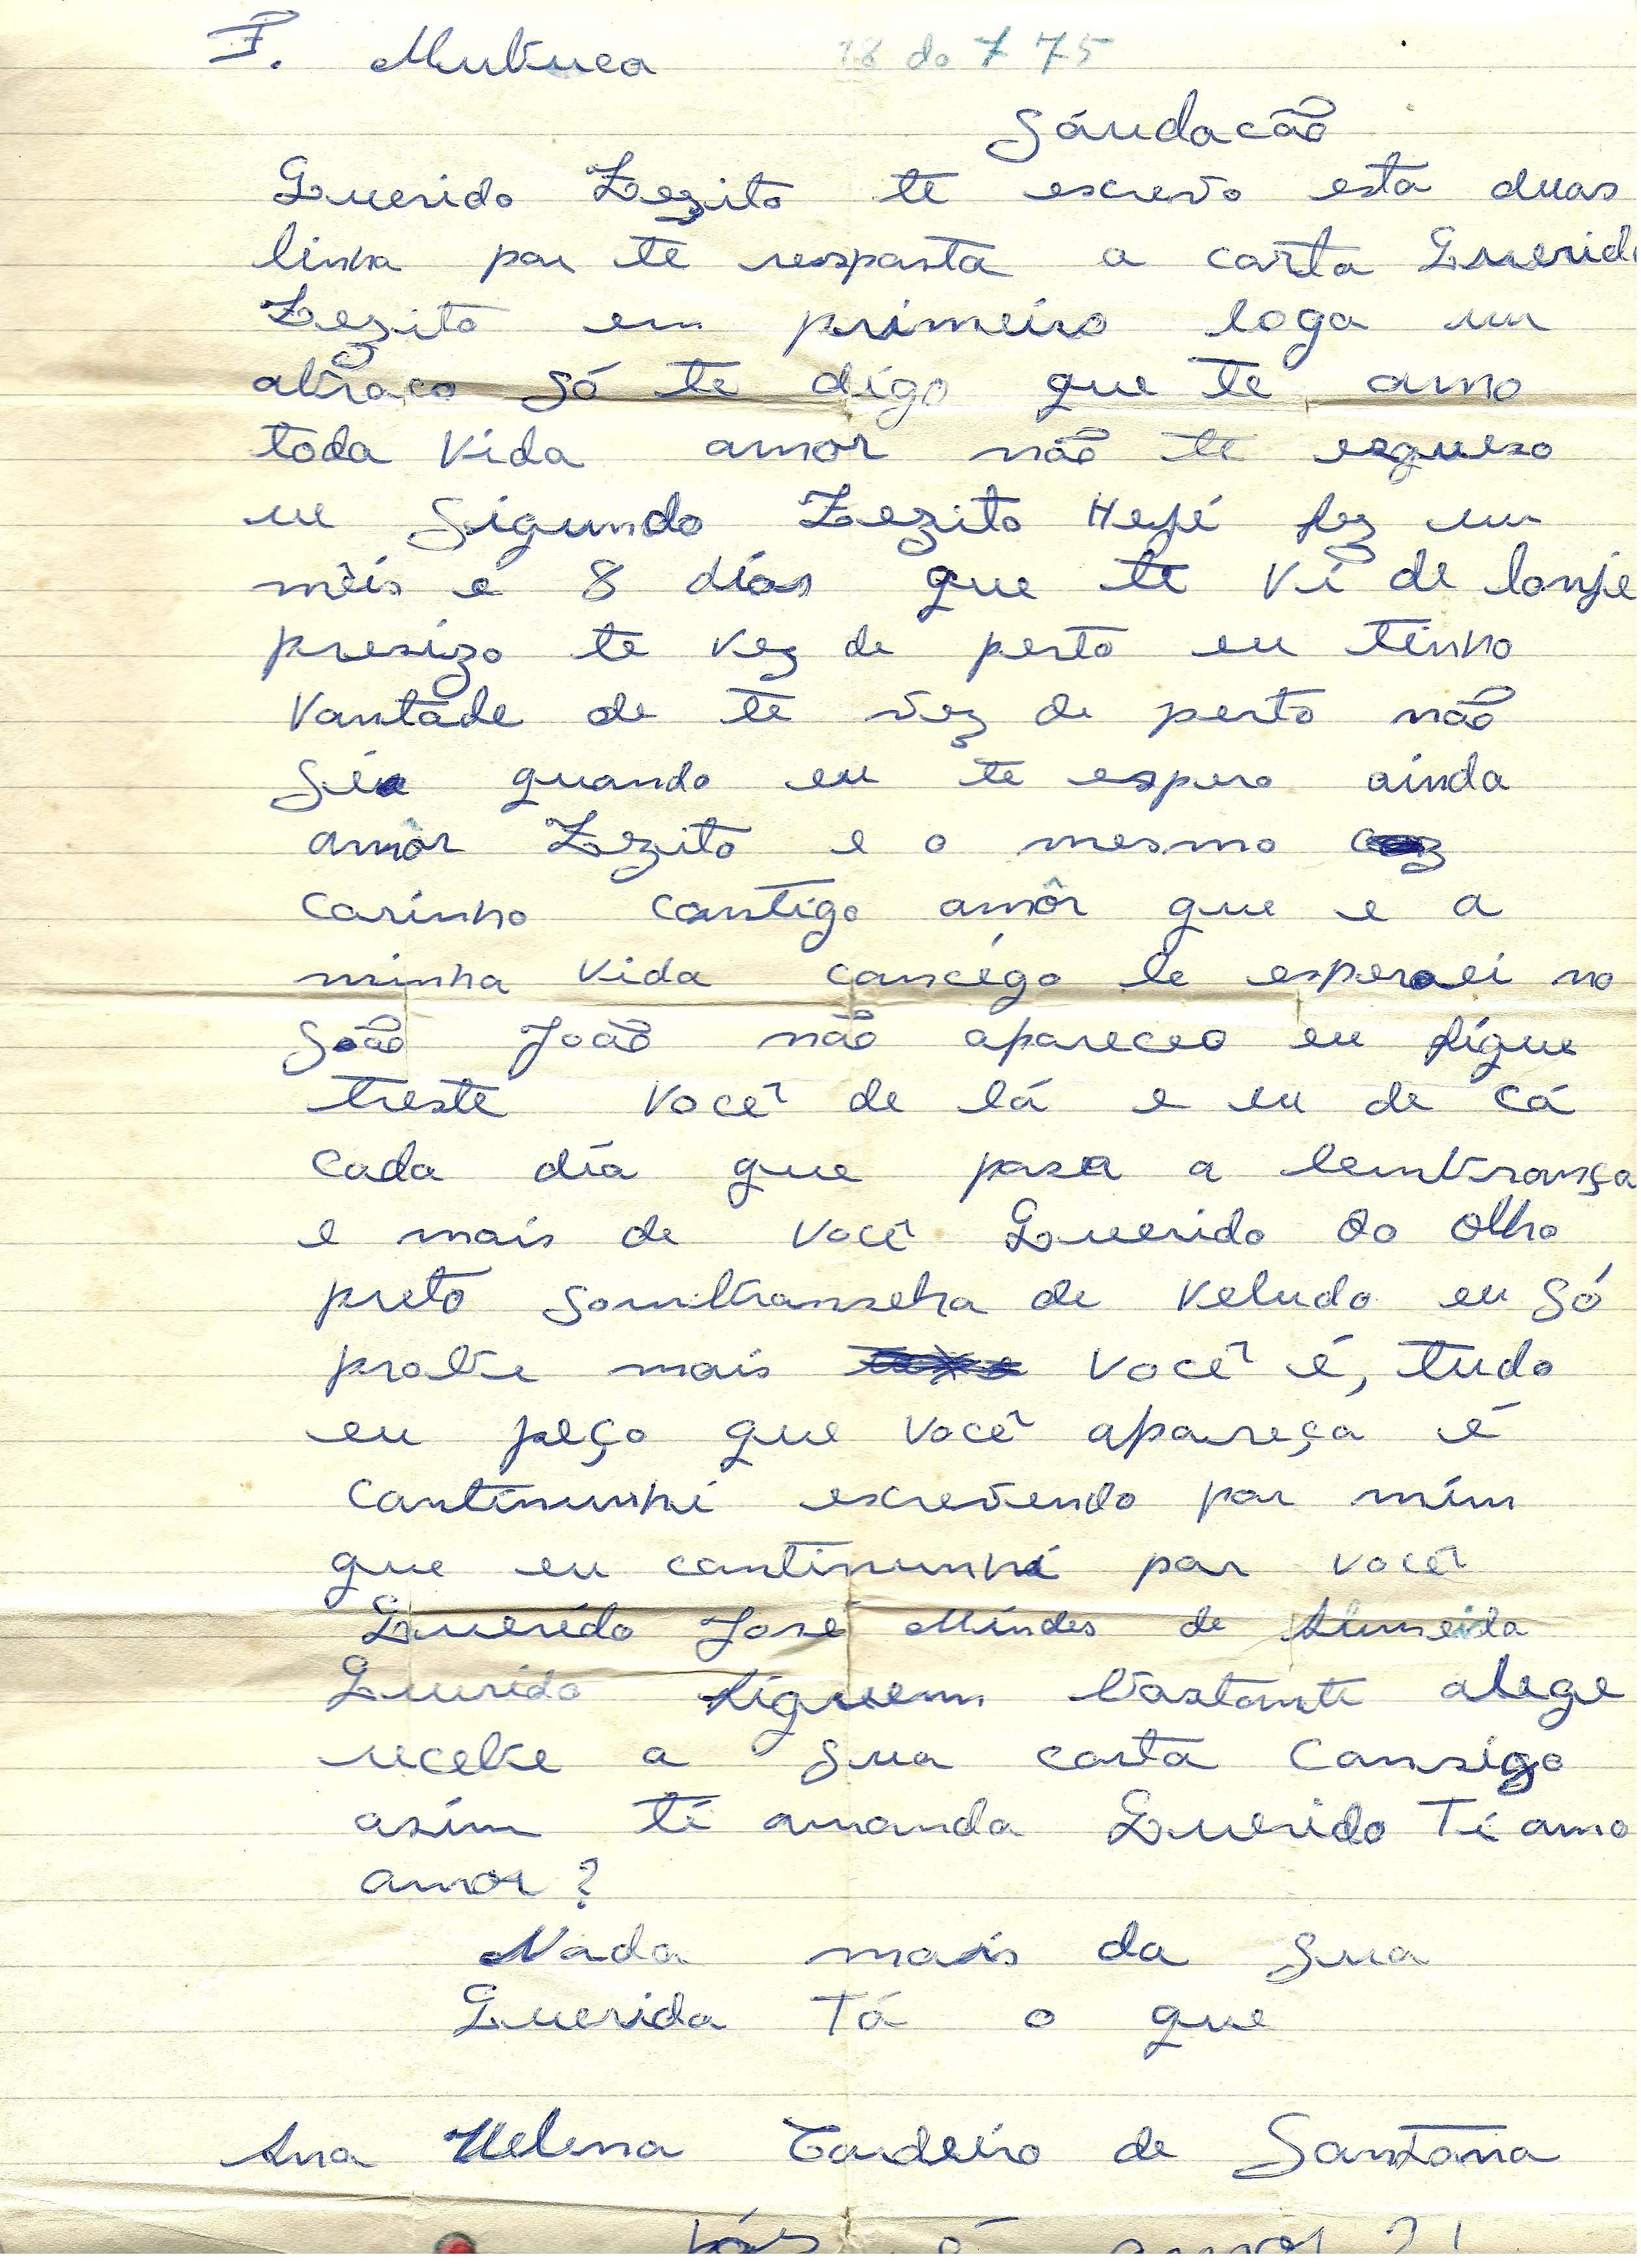 F. Mutuca 18 do 7 75
Sáudacão
Querido Zezito te escrevo esta duas
linha por te resposta a carta Querido
Zezito em primeiro loga um
abraço só te digo que te amo
toda vida amor não te esqueso
ue Sigundo Zezito Hejé fez um
mêis e 8 dias que te vi de lonje
presizo te vez de perto eu tinho
vontade de te vez de perto não
Séi quando eu te espero ainda
amôr Zezito e o mesmo
carinho contigo amôr que e a
minha vida concégo le esperaei no
São João não apareceo eu figue
treste você de lá e eu de cá
cada día que pasa a lembrança
e mais de você Querido do olho
preto sombranseha de veludo eu só
probe mais você é, tudo
eu peço que você apareça é
continunhi escrevendo por mim
que eu continunhi por você
Querido José Mindes de Almeida
Querido figuem bastante alege
recebe a sua carta consigo
asim ti amanda Querido Ti amo
amor?
Nada mais da sua
Querida Tá o que
Ana Helena Cordeiro de Santana